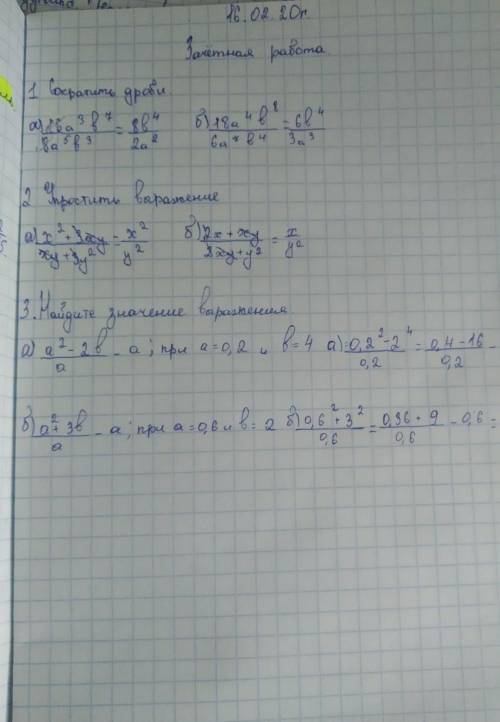 16.02.20г.
Зачётная работа
1 Сократить дроби.
а) 18a³b⁷/8a⁵b³ = 8b⁴/2a² б) 18a⁴b⁸/6a⁷b⁴ = 6b⁴/3a³
2 Упростить выражение
а) x²+3xy/xy+3y² = x²/y² б) 2x+xy/2xy+y² = x/y²
3. Найдите значение выражения
а) a²-2b/a - a; при a=0,2 и b=4 а) =0,2²-2⁴/0,2 = 0,4-16/0,2 -
б) a²+3b/a - a; при a=0,6 и b=2 б) 0,6²+3²/0,6 = 0,36+9/0,6 - 0,6 =